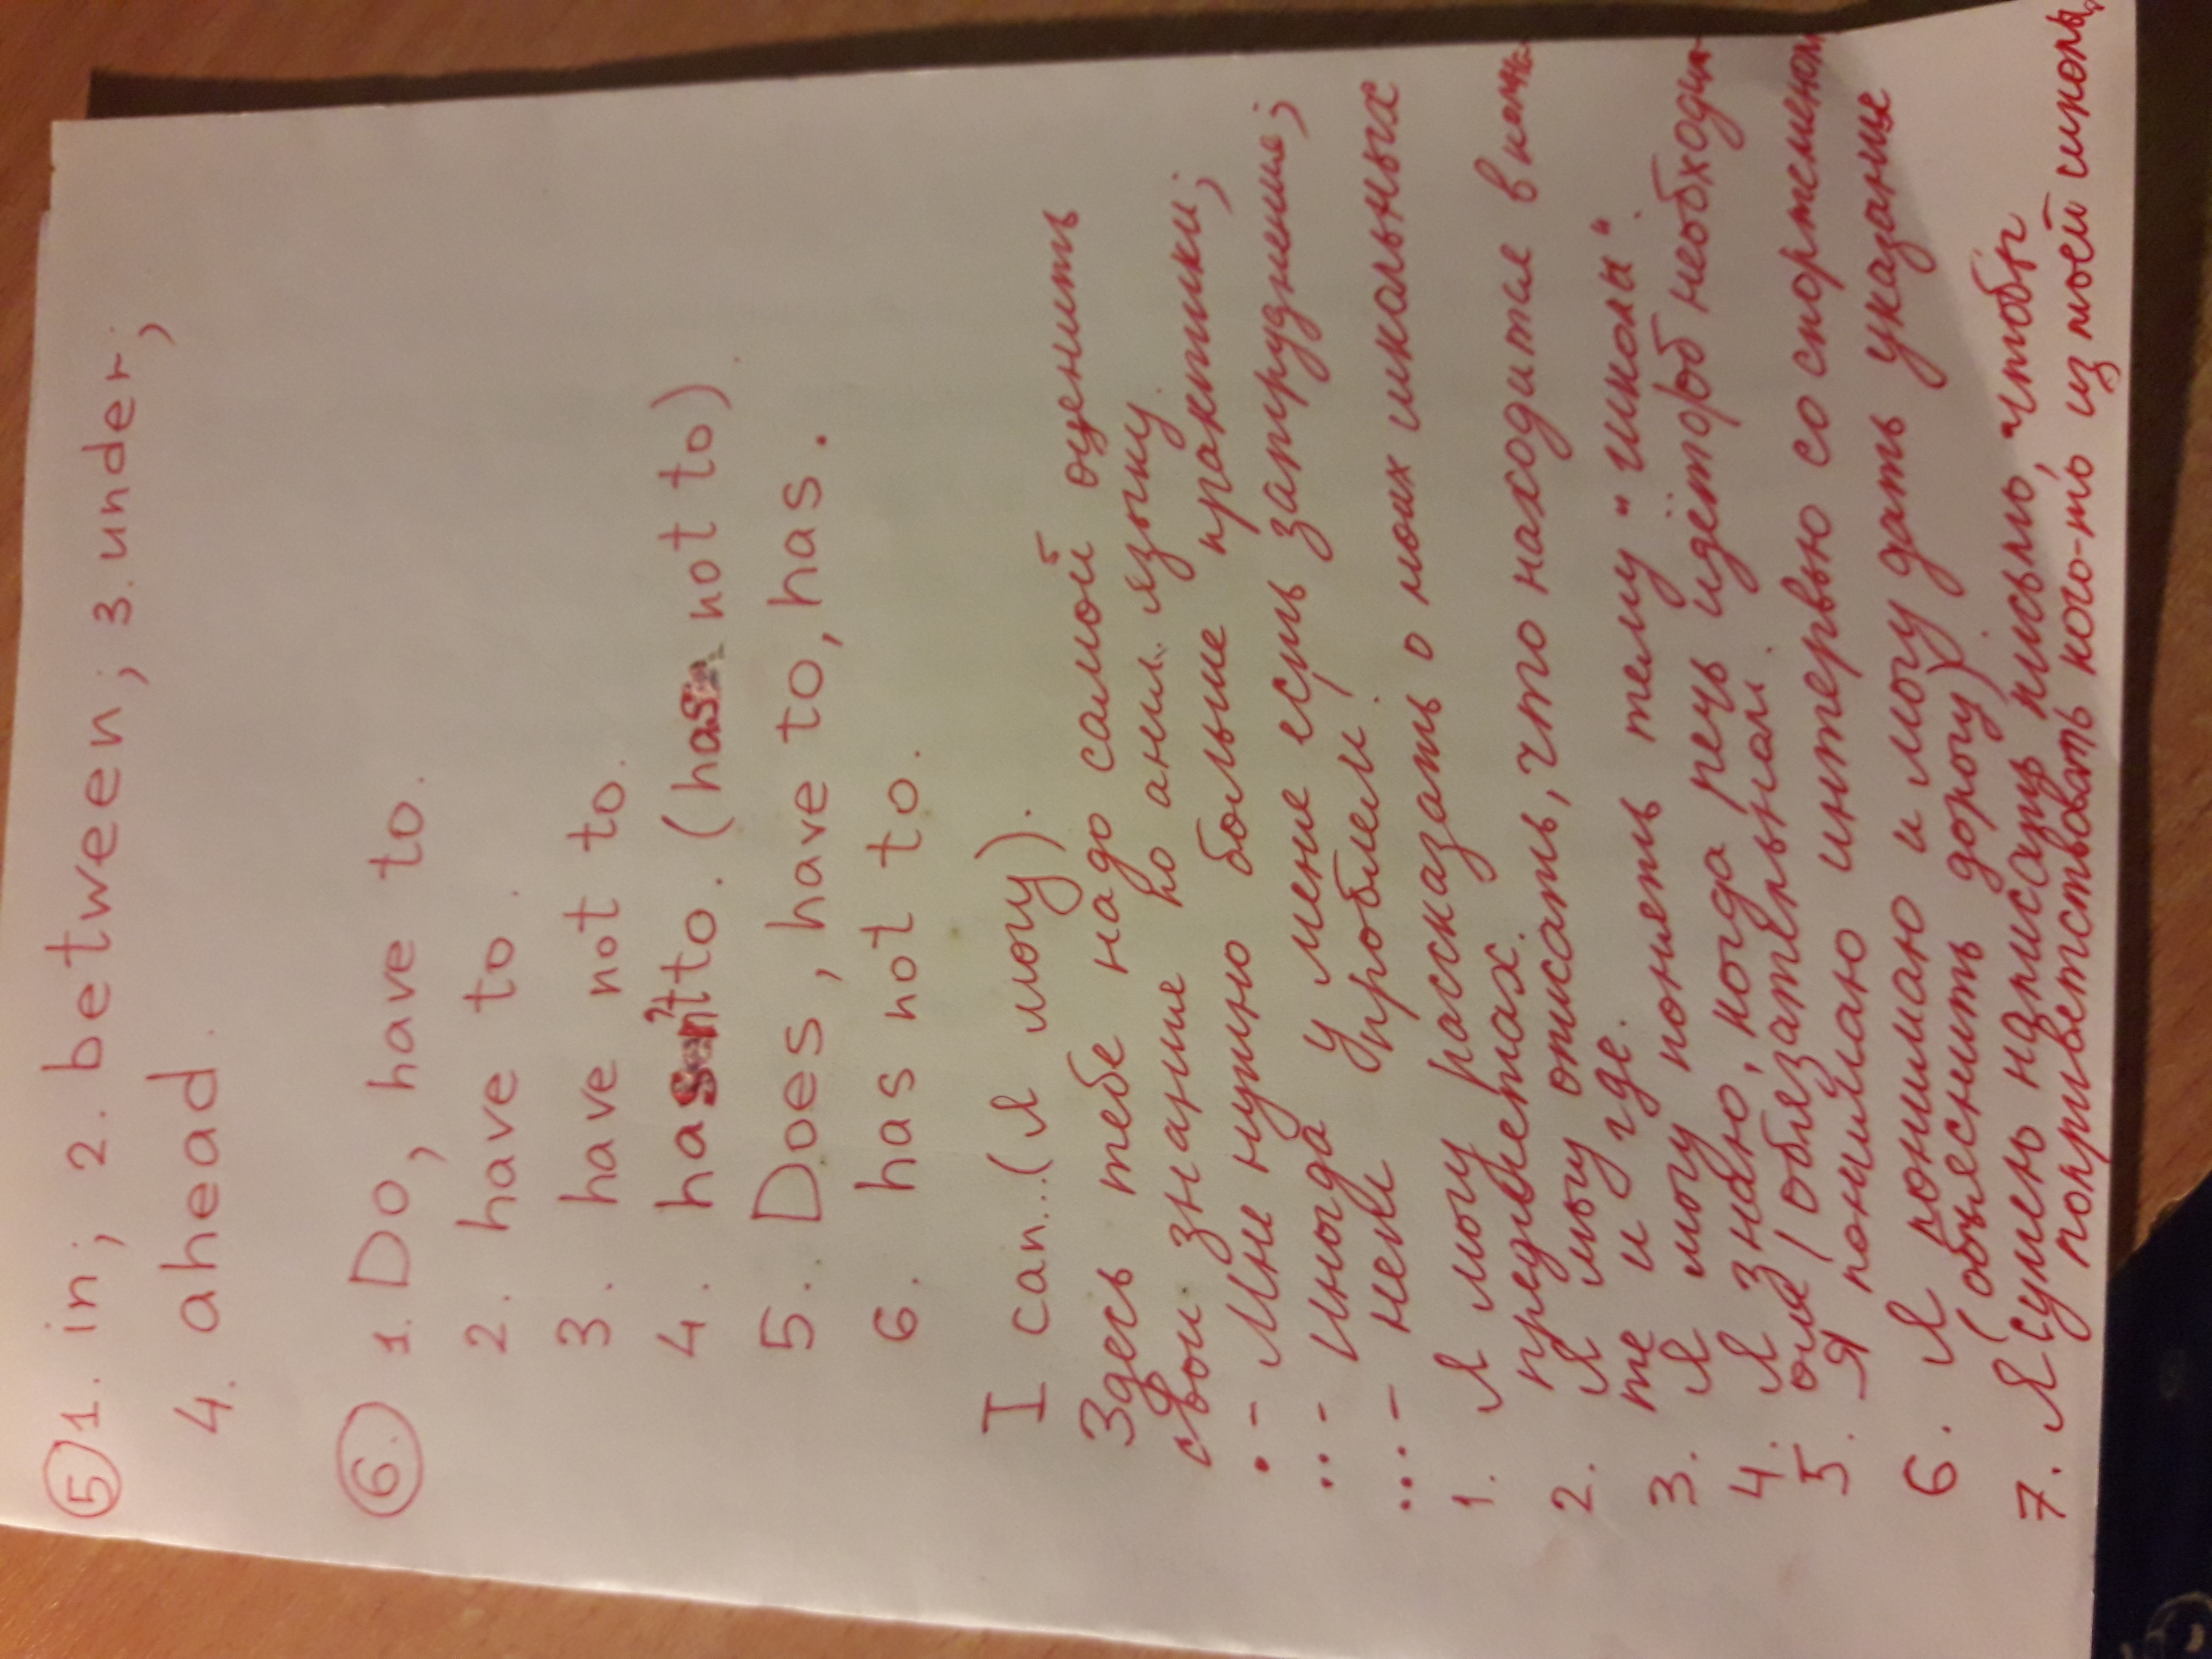 ⑤ 1. in; 2. between; 3. under;
4. ahead.
⑥ 1. Do, have to.
2. have to.
3. have not to.
4. hasn't to. (has not to)
5. Does, have to, has.
6. has not to.
I can...(я могу).
Здесь тебе надо самой оценить
свои знания по англ. языку.
• - Мне нужно больше практики;
•• - иногда у меня есть затруднения;
••• - нет проблем!
1. Я могу рассказать о моих школьных
предметах.
2. Я могу описать, что находится в комна-
те и где.
3. Я могу понять тему "школы".
4. Я знаю, когда речь идёт об необходим
ом / обязательном.
5. Я понимаю интервью со спортсменом
6. Я понимаю и могу дать указание
(объяснить дорогу).
7. Я сумею написать письмо, чтобы
поприветствовать кого-то из моей школы.